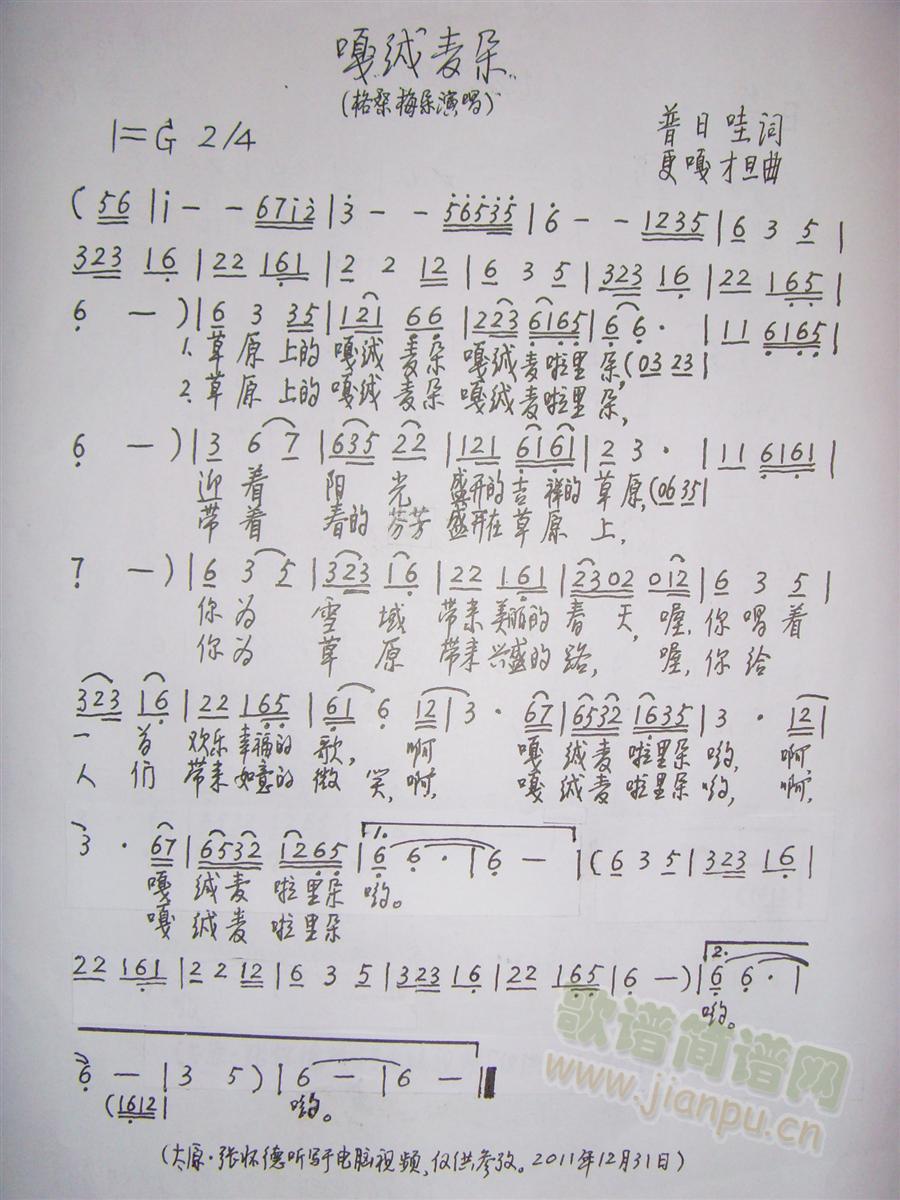 嘎绒麦朵
(格桑梅朵演唱)
1=G 2/4
普日哇词
更嘎才旦曲
(56|i--67i2|3--56535|6--1235|6 3 5|
323 16|22 161|2 2 12|6 3 5|323 16|22 165|
6 —)|6 3 35|121 66|223 6165|6 6·|11 6165|
1.草原上的嘎绒麦朵 嘎绒麦啦里朵,(03 23|
2.草原上的嘎绒麦朵 嘎绒麦啦里朵,
6 —)|3 6 7|635 22|121 6161|2 3·|11 6161|
迎着 阳光 盛开的吉祥的草原,(06 35|
带着 春的芬芳 盛开在草原上,
7 —)|6 3 5|323 16|22 161|2302 012|6 3 5|
你为 雪域 带来美丽的春天, 喔,你唱着
你为 草原 带来兴盛的路, 喔,你给
323 16|22 165|61 6 12|3· 67|6532 1635|3· 12|
一首 欢乐幸福的歌, 啊, 嘎绒麦啦里朵哟, 啊,
人们 带来如意的微笑,啊, 嘎绒麦啦里朵哟, 啊,
3· 67|6532 1265|1.6 6·|6 —|(6 3 5|323 16|
嘎绒麦 啦里朵 哟。
嘎绒麦 啦里朵
22 161|2 2 12|6 3 5|323 16|22 165|6 —)|2.6 6·|
哟。
6 —|3 5)|6 —|6 —|
(1612| 哟。
歌谱简谱网
www.jianpu.cn
(太原·张怀德听写于电脑视频,仅供参考。2011年12月31日)